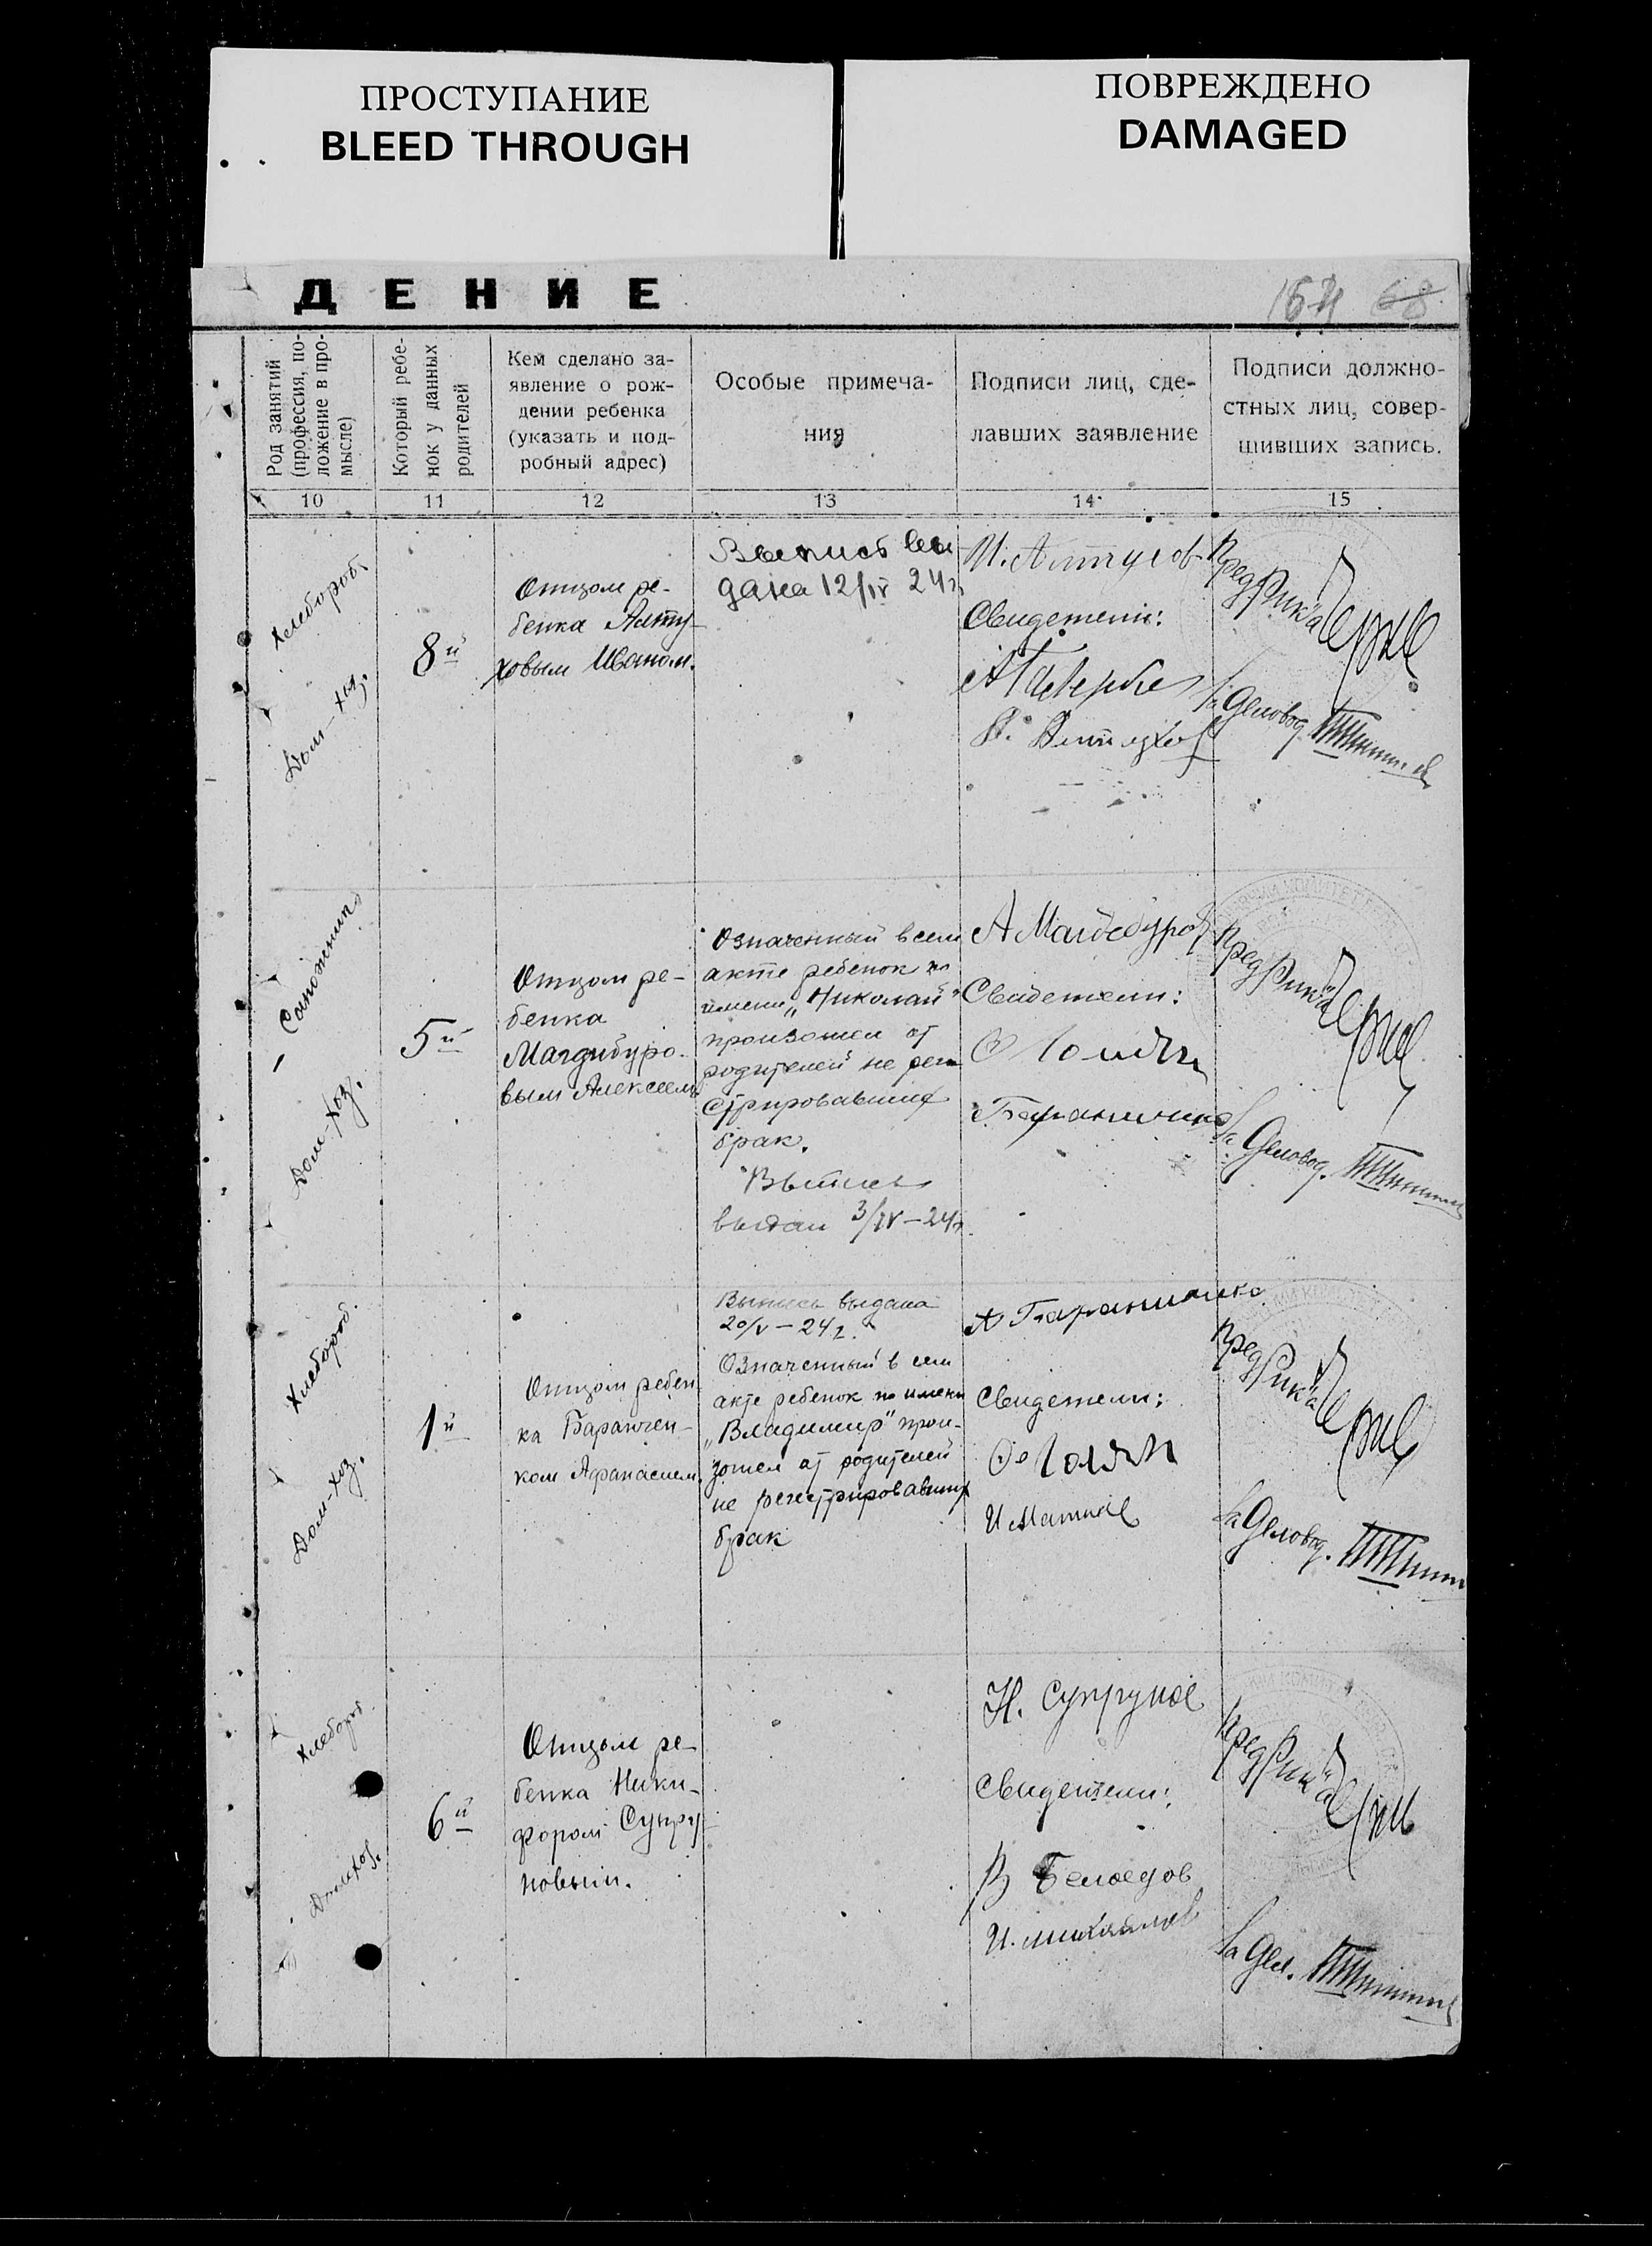 ПРОСТУПАНИЕ
BLEED THROUGH
ПОВРЕЖДЕНО
DAMAGED
ДЕНИЕ
Род занятий
(профессия, по-
ложение в про-
мысле)
Который ребе-
нок у данных
родителей
Кем сделано за-
явление о рож-
дении ребенка
(указать и под-
робный адрес)
Особые примеча-
ния
Подписи лиц, сде-
лавших заявление
Подписи должно-
стных лиц, совер-
шивших запись.
10
11
12
13
14
15
Хлебороб.
Дом-хоз.
8й
Отцом ре-
бенка Алту-
ховым Иваном.
Выпись вы-
дана 12/IV 24г.
Свидетели:
Пред Рик'а
За Деловод.
Сапожник
Дом-хоз.
5й
Отцом ре-
бенка
Магдибуро-
вым Алексеем
Означенный в сем
акте ребенок по
имени "Николай"
произошел от
родителей не реги
стрировавших
брак.
Выпись
выдан 3/IV-24г.
А Магдебуров
Свидетели:
Пред Рик'а
За Деловод.
Хлебороб.
Дом-хоз.
1й
Отцом ребен-
ка Баранчен-
ком Афанасием.
Выпись выдана
20/V-24г.
Означенный в сем
акте ребенок по имени
"Владимир" прои-
зошел от родителей
не регестрировавших
брак
Свидетели:
Пред Рик'а
За Деловод.
Хлебороб.
Дом.хоз.
6й
Отцом ре-
бенка Ники-
фором Супру-
новым.
Н. Супрунов
Свидетели:
В Белоедов
И. Михайлов
Пред Рик'а
За Дел.